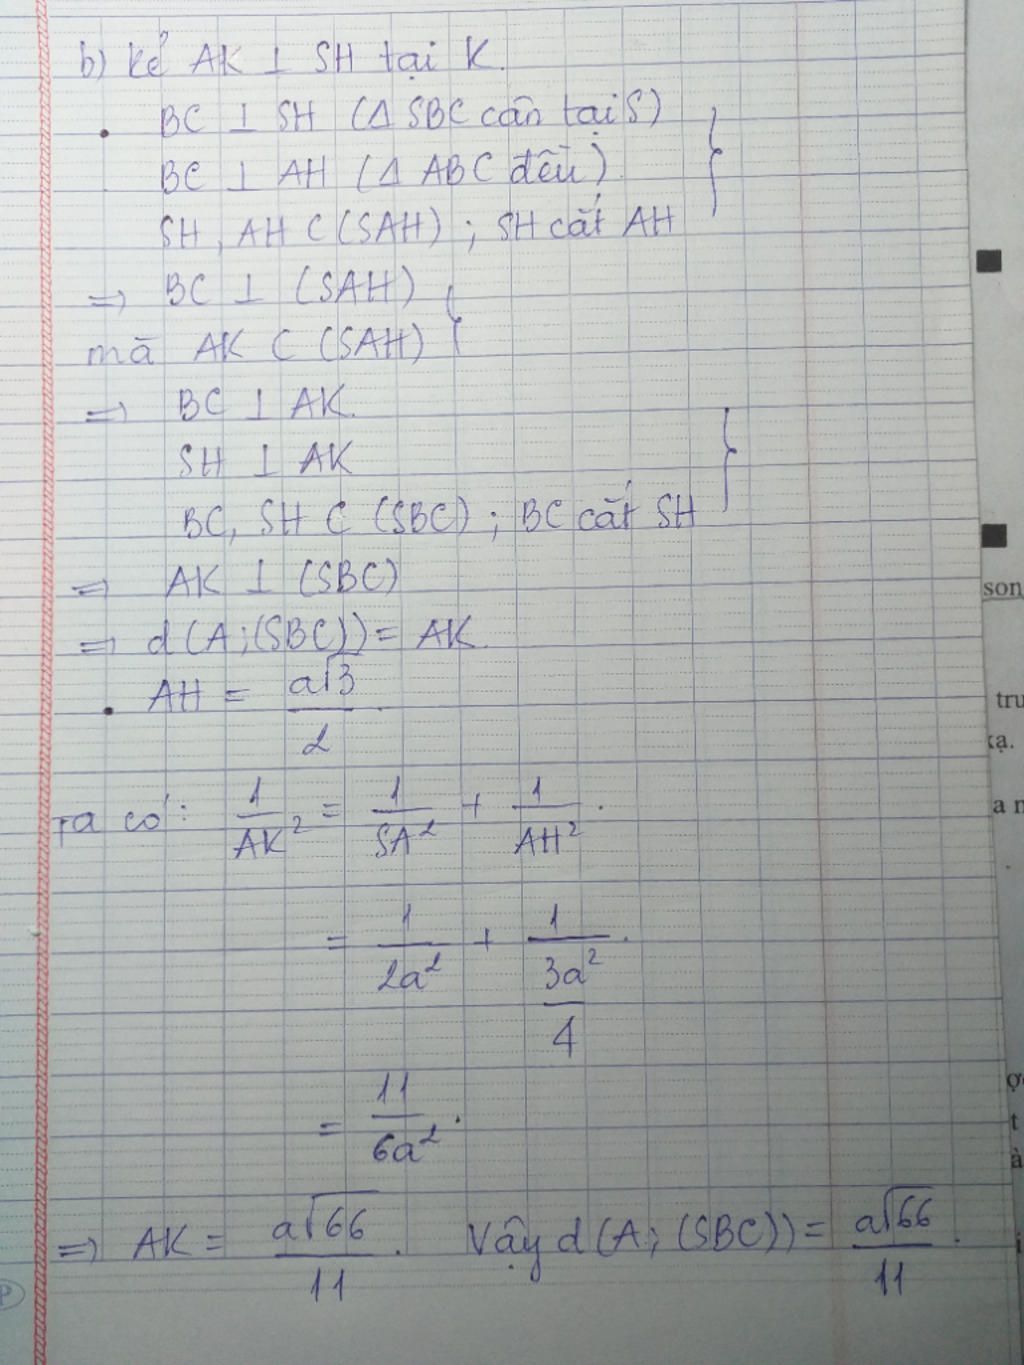 b) Kẻ AK ⊥ SH tại K.
• BC ⊥ SH (Δ SBC cân tại S)
BC ⊥ AH (Δ ABC đều)
SH, AH ⊂ (SAH) ; SH cắt AH
=> BC ⊥ (SAH)
mà AK ⊂ (SAH)
=> BC ⊥ AK.
SH ⊥ AK
BC, SH ⊂ (SBC) ; BC cắt SH
=> AK ⊥ (SBC)
=> d(A;(SBC)) = AK.
• AH = a√3/2.
Ta có: 1/AK² = 1/SA² + 1/AH².
= 1/2a² + 1/(3a²/4).
= 11/6a².
=> AK = a√66/11. Vậy d(A; (SBC)) = a√66/11.
son
tru
xạ.
a n
t
à